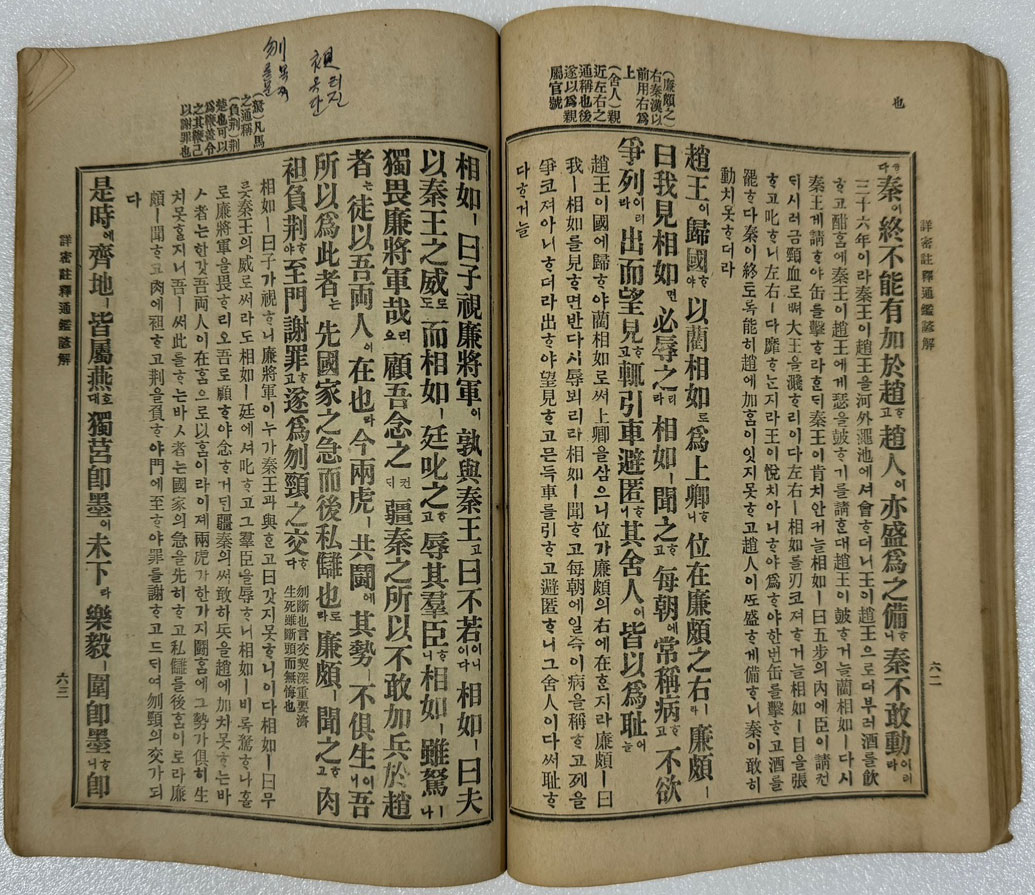 也
(廉頗之)
右秦漢以
前用右爲
上
(舍人)親
近左右之
通稱也後
遂以爲親
屬官號
詳密註釋通鑑諺解
六二
秦이終不能有加於趙ᄒᆞ고趙人이亦盛爲之備ᄒᆞ니秦不敢動이러라
三十六年이라秦王이趙王을河外澠池에셔會ᄒᆞ더니王이趙王으로더부러酒를飮
ᄒᆞ고酣ᄒᆞᆷ에秦王이趙王에게瑟을鼓ᄒᆞ기를請ᄒᆞᆫ대趙王이鼓ᄒᆞ거늘藺相如ㅣ다시
秦王게請ᄒᆞ야缶를擊ᄒᆞ라ᄒᆞᆫᄃᆡ秦王이肯치안커늘相如ㅣ曰五步의內에臣이請컨
ᄃᆡ시러금頸血로ᄡᅥ大王을濺ᄒᆞ리이다左右ㅣ相如를刃코져ᄒᆞ거늘相如ㅣ目을張
ᄒᆞ고叱ᄒᆞ니左右ㅣ다靡ᄒᆞᄂᆞᆫ지라王이悅치아니ᄒᆞ야爲ᄒᆞ야한번缶를擊ᄒᆞ고酒를
罷ᄒᆞ다秦이終토록能히趙에加ᄒᆞᆷ이잇지못ᄒᆞ고趙人이ᄯᅩ盛ᄒᆞ게備ᄒᆞ니秦이敢히
動치못ᄒᆞ더라
趙王이歸國ᄒᆞ야以藺相如로爲上卿ᄒᆞ니位在廉頗之右ㅣ라廉頗ㅣ
曰我見相如면必辱之리라相如ㅣ聞之ᄒᆞ고每朝에常稱病ᄒᆞ고不欲
爭列이러라出而望見ᄒᆞ고輒引車避匿ᄒᆞ니其舍人이皆以爲耻어늘
趙王이國에歸ᄒᆞ야藺相如로써上卿을삼으니位가廉頗의右에在ᄒᆞᆫ지라廉頗ㅣ曰
我ㅣ相如를見ᄒᆞ면반다시辱뵈리라相如ㅣ聞ᄒᆞ고每朝에일즉이病을稱ᄒᆞ고列을
爭코져아니ᄒᆞ더라出ᄒᆞ야望見ᄒᆞ고문득車를引ᄒᆞ고避匿ᄒᆞ니그舍人이다써耻ᄒᆞ
다ᄒᆞ거늘
(駑)凡馬
之通稱
(負荊)荊
楚也可以
爲鞭盖令
之其鞭己
以謝罪也
相如ㅣ曰子視廉將軍이孰與秦王고曰不若이니이다相如ㅣ曰夫
以秦王之威로도而相如ㅣ廷叱之ᄒᆞ고辱其羣臣ᄒᆞ니相如ㅣ雖駑ㅣ나
獨畏廉將軍哉리오顧吾念之컨ᄃᆡ疆秦之所以不敢加兵於趙
者ᄂᆞᆫ徒以吾兩人이在也라今兩虎ㅣ共鬪에其勢ㅣ不俱生이니吾
所以爲此者ᄂᆞᆫ先國家之急而後私讎也로라廉頗ㅣ聞之ᄒᆞ고肉
袒負荆ᄒᆞ야至門謝罪ᄒᆞ고遂爲刎頸之交ᄒᆞ다
刎斷也言交契深重要濟
生死雖斷頸而無悔也
相如ㅣ曰子가視ᄒᆞ니廉將軍이누가秦王과與ᄒᆞᆫ고曰갓지못ᄒᆞ니이다相如ㅣ曰무
릇秦王의威로써라도相如ㅣ廷에셔叱ᄒᆞ고그羣臣을辱ᄒᆞ니相如ㅣ비록駑ᄒᆞ나홀
로廉將軍을畏ᄒᆞ리오吾로顧ᄒᆞ야念ᄒᆞ거ᄃᆡᆫ疆秦의써敢히兵을趙에加치못ᄒᆞᄂᆞᆫ바
ㅅ者ᄂᆞᆫ한갓吾兩人이在ᄒᆞᆷ으로以ᄒᆞᆷ이라이제兩虎가한가지鬪ᄒᆞᆷ에그勢가俱히生
치못ᄒᆞᆯ지니吾ㅣ써此를ᄒᆞᄂᆞᆫ바ㅅ者ᄂᆞᆫ國家의急을先히ᄒᆞ고私讎를後ᄒᆞᆷ이로라廉
頗ㅣ聞ᄒᆞ고肉에袒ᄒᆞ고荆을負ᄒᆞ야門에至ᄒᆞ야罪를謝ᄒᆞ고드ᄃᆡ여刎頸의交가되
다
是時에齊地ㅣ皆屬燕호ᄃᆡ獨莒卽墨이未下ㅣ라樂毅ㅣ圍卽墨ᄒᆞ니卽
詳密註釋通鑑諺解
六三